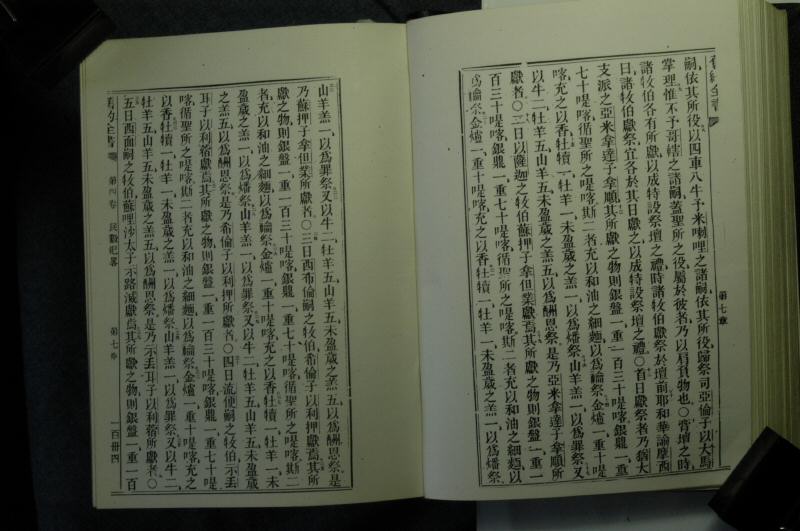 舊約全書
第七章
嗣、依其所役、以四車八牛予米喇哩之諸嗣、依其所役、歸祭司亞倫子以大馬
掌理、惟不予哥轄之諸嗣、蓋聖所之役屬於彼者、乃以肩負物也○膏壇之時
諸牧伯各有所獻、以成特設祭壇之禮、時諸牧伯獻祭於壇前、耶和華諭摩西
曰、諸牧伯獻祭、宜各於其日獻之、以成特設祭壇之禮○首日獻祭者乃猶大
支派之亞米拿達子拿順、其所獻之物、則銀盤一、重一百三十㖷喀、銀一、重
七十㖷喀、循聖所之㖷喀、斯二者充以和油之細麵、以爲祭、金爐一、重十㖷喀、充之
以香、牡犢一、牡羊一、未盈歲之羔一、以爲燔祭、山羊羔一、以爲罪祭、又
以牛二、牡羊五、山羊五、未盈歲之羔五、以爲酬恩祭、是乃亞米拿達子拿順所
獻者○二日以薩迦之牧伯蘇押子拿但業獻焉、其所獻之物、則銀盤一、重一
百三十㖷喀、銀一、重七十㖷喀、循聖所之㖷喀、斯二者充以和油之細麵、以
爲祭、金爐一、重十㖷喀、充之以香、牡犢一、牡羊一、未盈歲之羔一、以爲燔祭、
山羊羔一、以爲罪祭、又以牛二、牡羊五、山羊五、未盈歲之羔五、以爲酬恩祭、是
乃蘇押子拿但業所獻者○三日西布倫嗣之牧伯希倫子以利押獻焉、其所
獻之物、則銀盤一、重一百三十㖷喀、銀一、重七十㖷喀、循聖所之㖷喀、斯二
者充以和油之細麵、以爲祭、金爐一、重十㖷喀、充之以香、牡犢一、牡羊一、未
盈歲之羔一、以爲燔祭、山羊羔一、以爲罪祭、又以牛二、牡羊五、山羊五、未盈歲
之羔五、以爲酬恩祭、是乃希倫子以利押所獻者○四日流便嗣之牧伯示丟
耳子以利蓿獻焉、其所獻之物、則銀盤一、重一百三十㖷喀、銀一、重七十㖷
喀、循聖所之㖷喀、斯二者充以和油之細麵、以爲祭、金爐一、重十㖷喀、充之
以香、牡犢一、牡羊一、未盈歲之羔一、以爲燔祭、山羊羔一、以爲罪祭、又以牛二、
牡羊五、山羊五、未盈歲之羔五、以爲酬恩祭、是乃示丟耳子以利蓿所獻者○
五日西面嗣之牧伯蘇哩沙太子示路滅獻焉、其所獻之物、則銀盤一、重一百
舊約全書
第四卷 民數紀畧
第七章
一百卌四